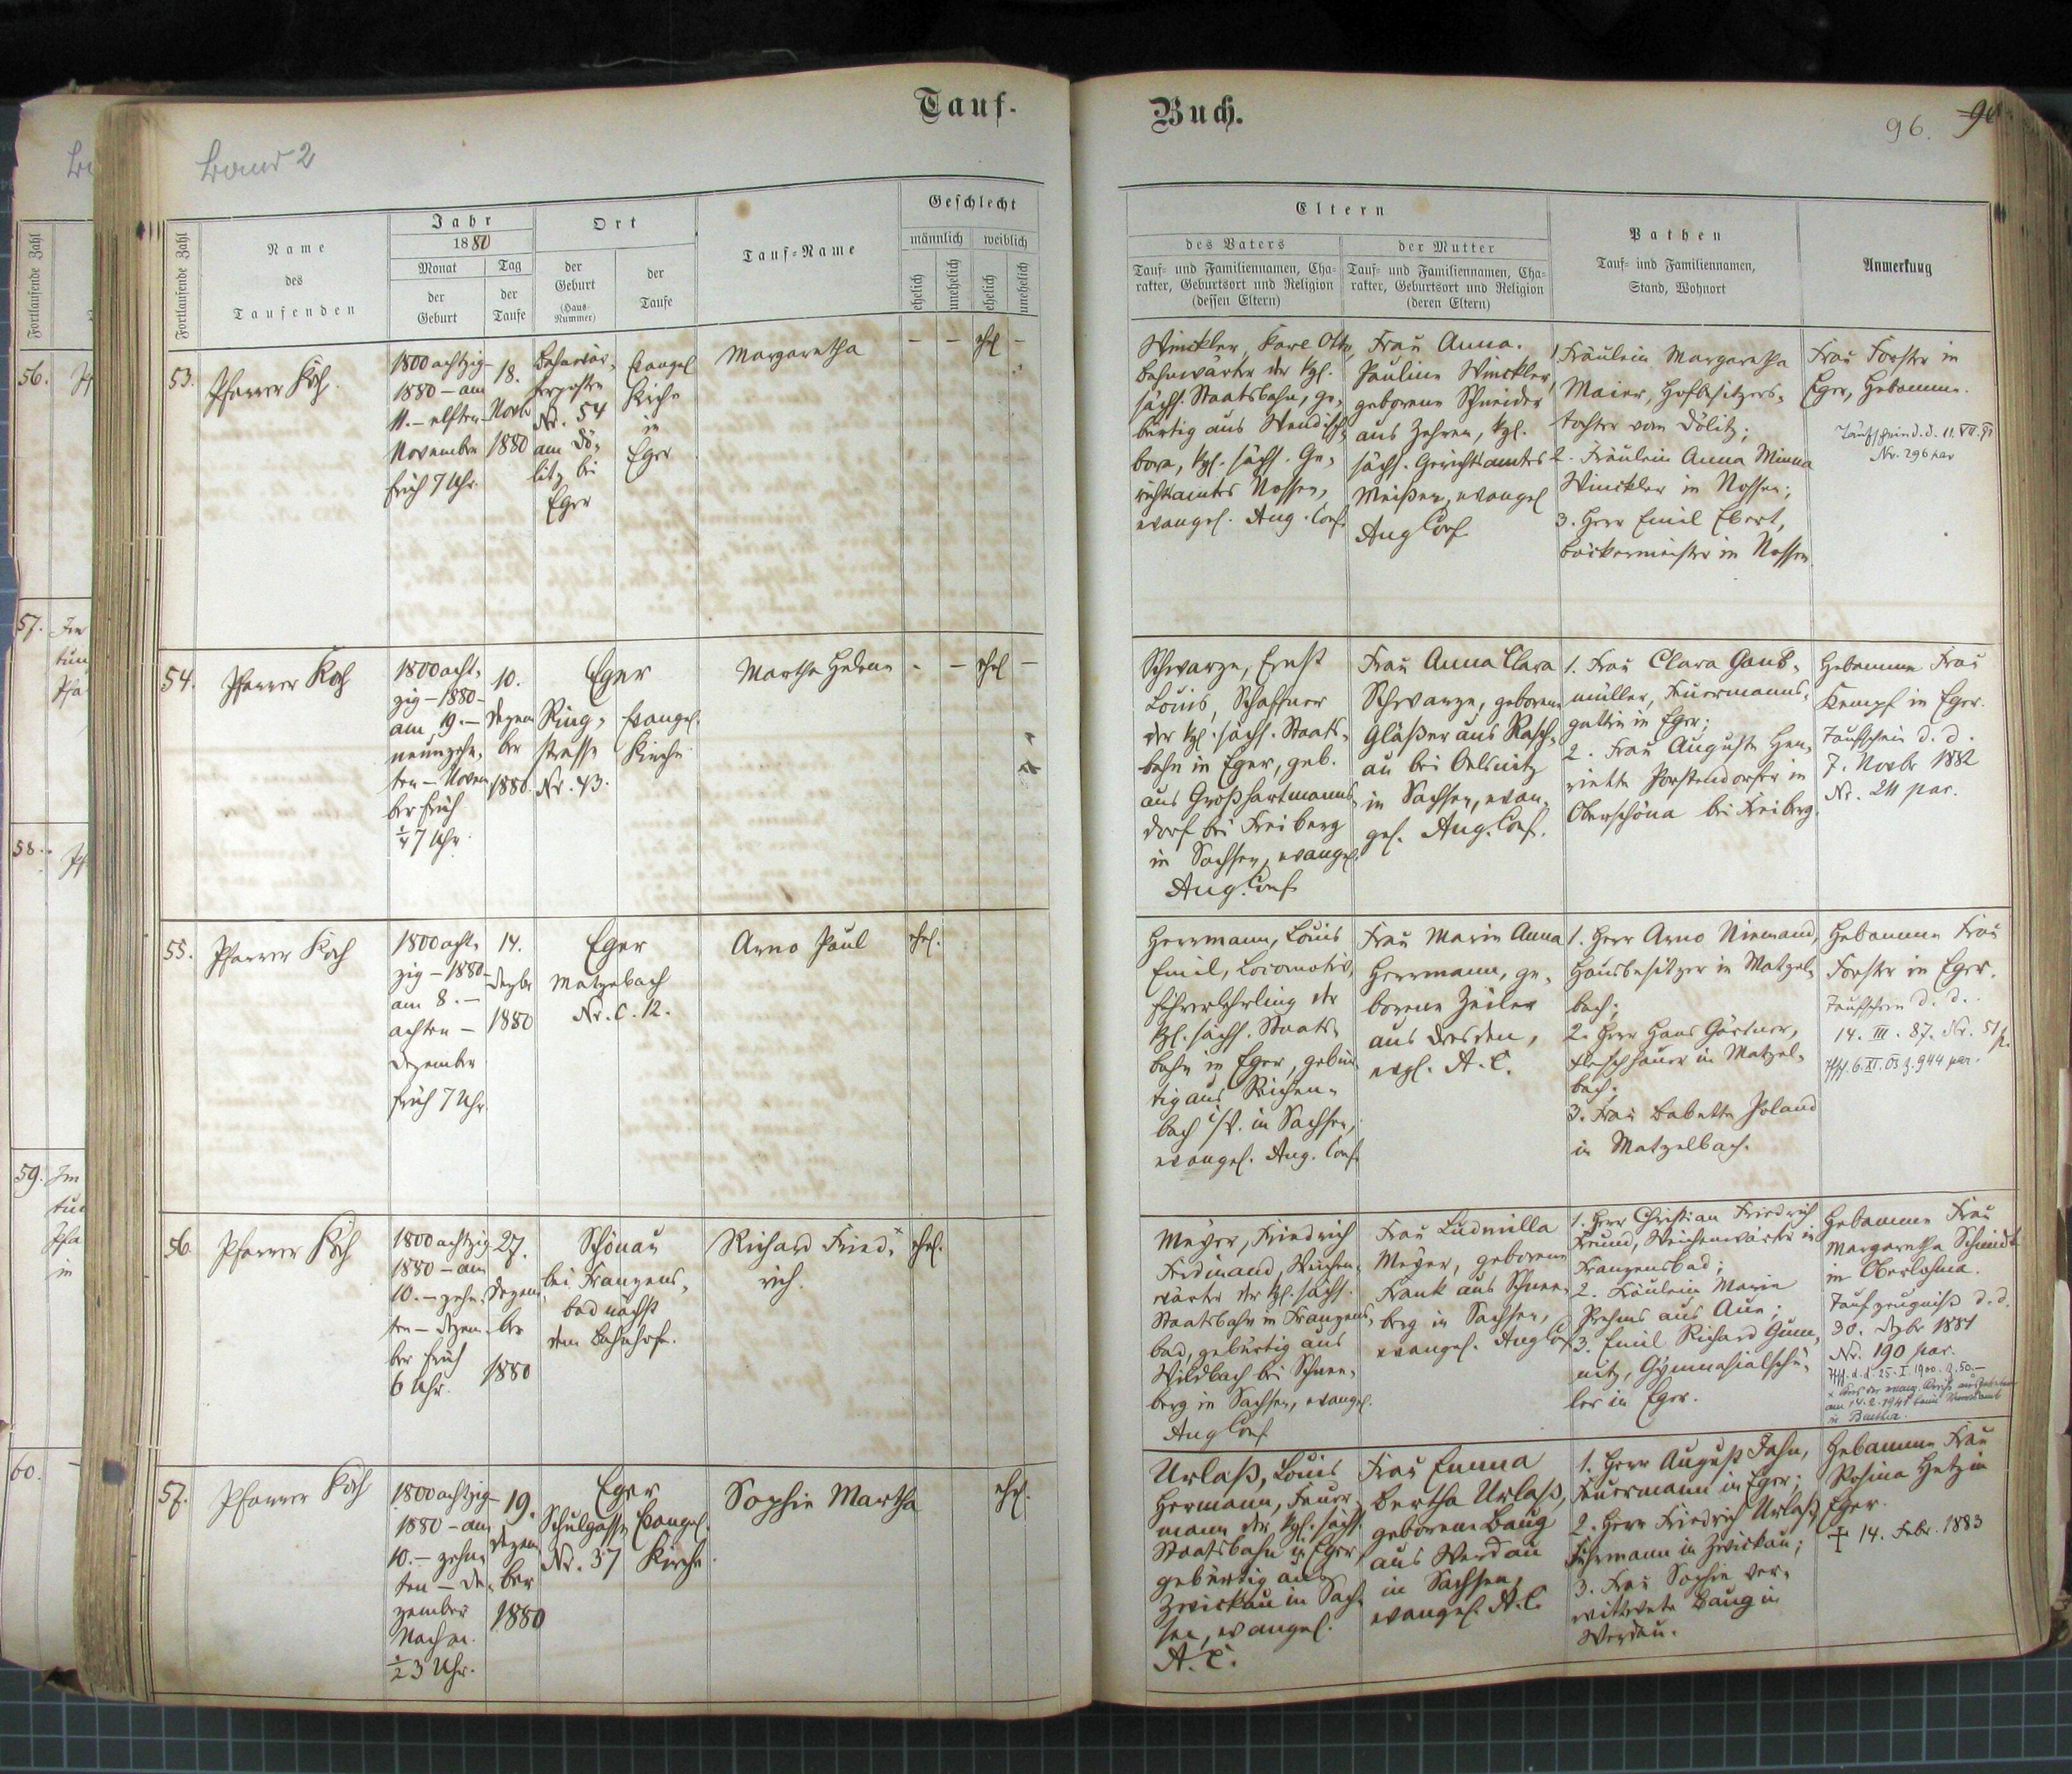 Tauf-
Buch.
96.
Band 2
Fortlaufende Zahl
Name
des
Taufenden
Jahr
1880
Monat
der
Geburt
Tag
der
Taufe
Ort
der
Geburt
(Haus-
Nummer)
der
Taufe
Tauf-Name
Geschlecht
männlich
weiblich
ehelich
unehelich
ehelich
unehelich
Eltern
des Vaters
Tauf- und Familiennamen, Cha-
rakter, Geburtsort und Religion
(dessen Eltern)
der Mutter
Tauf- und Familiennamen, Cha-
rakter, Geburtsort und Religion
(deren Eltern)
Pathen
Tauf- und Familiennamen,
Stand, Wohnort
Anmerkung
Fortlaufende Zahl
56.
57.
58.
59.
60.
53.
Pfarrer Koch.
1800achtzig-
1880 - am
11. - elften -
November
früh 7 Uhr.
18.
Novbr
1880
Bahnwär-
terposten
Nr. 54
am Dö-
litz bei
Eger
Evangel
Kirche
in
Eger
Margaretha
- - ehel -
Winckler, Karl Otto,
Bahnwärter der kgl.
sächs. Staatsbahn, ge-
bürtig aus Wendisch-
bora, kgl. sächs. Ge-
richtsamtes Nossen,
evangel. Aug. Conf.
Frau Anna
Pauline Winckler,
geborene Schneider
aus Zehren, kgl.
sächs. Gerichtsamtes
Meißen, evangel
Aug Conf
1. Fräulein Margaretha
Maier, Hofbesitzers-
tochter vom Dölitz;
2. Fräulein Anna Minna
Winckler in Nossen;
3. Herr Emil Ebert,
Bäckermeister in Nossen
Frau Forster in
Eger, Hebamme.
Taufschein d. d. 11. VII. 91
Nr. 296 par
54.
Pfarrer Koch
1800acht-
zig - 1880 -
am 19. -
neunzehn-
ten - Novem
ber früh
¼7 Uhr.
10.
Dezem
ber
1880.
Eger
Ring-
strasse
Nr. 43.
Evangel.
Kirche
Martha Helene
- - ehel -
Schwarze, Ernst
Louis, Schaffner
der kgl. sächs. Staats-
bahn in Eger, geb.
aus Großhartmanns-
dorf bei Freiberg
in Sachsen, evangel.
Aug. Conf
Frau Anna Clara
Schwarze, geborene
Gläßer aus Rasch-
au bei Oelsnitz
in Sachsen, evan-
gel. Aug. Conf.
1. Frau Clara Gans-
müller, Feuermanns-
gattin in Eger;
2. Frau Auguste Hen-
riette Porstendorfer in
Oberschöna bei Freiberg.
Hebamme Frau
Kempf in Eger.
Taufschein d. d.
7. Novbr 1882
Nr. 211 par.
55.
Pfarrer Koch
1800acht-
zig - 1880 -
am 8. -
achten -
Dezember
früh 7 Uhr.
14.
Dezbr
1880
Eger
Matzebach
Nr. C. 12.
Arno Paul
ehel.
Herrmann, Louis
Emil, Locomotiv-
führerlehrling der
kgl. sächs. Staats-
bahn in Eger, gebür-
tig aus Reichen-
bach i/V. in Sachsen,
evangel. Aug. Conf
Frau Marie Anna
Herrmann, ge-
borene Zeiler
aus Dresden,
evgl. A. C.
1. Herr Arno Niemand,
Hausbesitzer in Matzel-
bach;
2. Herr Hans Gärtner,
Fleischhauer in Matzel-
bach;
3. Frau Babette Poland
in Matzelbach.
Hebamme Frau
Forster in Eger.
Taufschein d. d.
14. III. 87. Nr. 51 p.
6. XI. 03 Z. 944 par.
56.
Pfarrer Koch
1800achtzig
1880 - am
10. - zehn-
ten - Dezem-
ber früh
6 Uhr.
27.
Dezem
ber
1880
Schönau
bei Franzens-
bad nächst
dem Bahnhofe.
Richard Fried-
rich.
ehel.
Meyer, Friedrich
Ferdinand, Weichen-
wärter der kgl. sächs.
Staatsbahn in Franzens-
bad, gebürtig aus
Wildbach bei Schnee-
berg in Sachsen, evangel.
Aug Conf
Frau Ludmilla
Meyer, geborene
Frank aus Schnee-
berg in Sachsen,
evangel. Aug Conf
1. Herr Christian Friedrich
Freund, Weichenwärter in
Franzensbad;
2. Fräulein Marie
Prehns aus Aue;
3. Emil Richard
Gymnasialschü-
ler in Eger.
Hebamme Frau
Margaretha Schmidt
in Oberlohma.
Taufzeugniss d. d.
30. Dezbr 1881
Nr. 190 par.
d. d. 25. I. 1900. Z. 50. -
x Aus der evang. Kirche ausgetreten
am 14. 2. 1941 beim
in
57.
Pfarrer Koch
1800achtzig-
1880 - am
10. - zehn-
ten - De-
zember
Nachm.
½3 Uhr.
19.
Dezem
ber
1880
Eger
Schulgasse
Nr. 37
Evangel.
Kirche.
Sophie Martha
ehel.
Urlaß, Louis
Hermann, Feuer-
mann der kgl. sächs.
Staatsbahn in Eger,
gebürtig aus
Zwickau in Sach-
sen, evangel.
A. C.
Frau Emma
Bertha Urlaß,
geborene Baug
aus Werdau
in Sachsen,
evangel. A. C.
1. Herr August Jahn,
Feuermann in Eger;
2. Herr Friedrich Urlaß,
Fuhrmann in Zwickau;
3. Frau Sophie ver-
wittwete Baug in
Werdau.
Hebamme Frau
Rosina Hetz in
Eger.
† 14. Febr. 1883